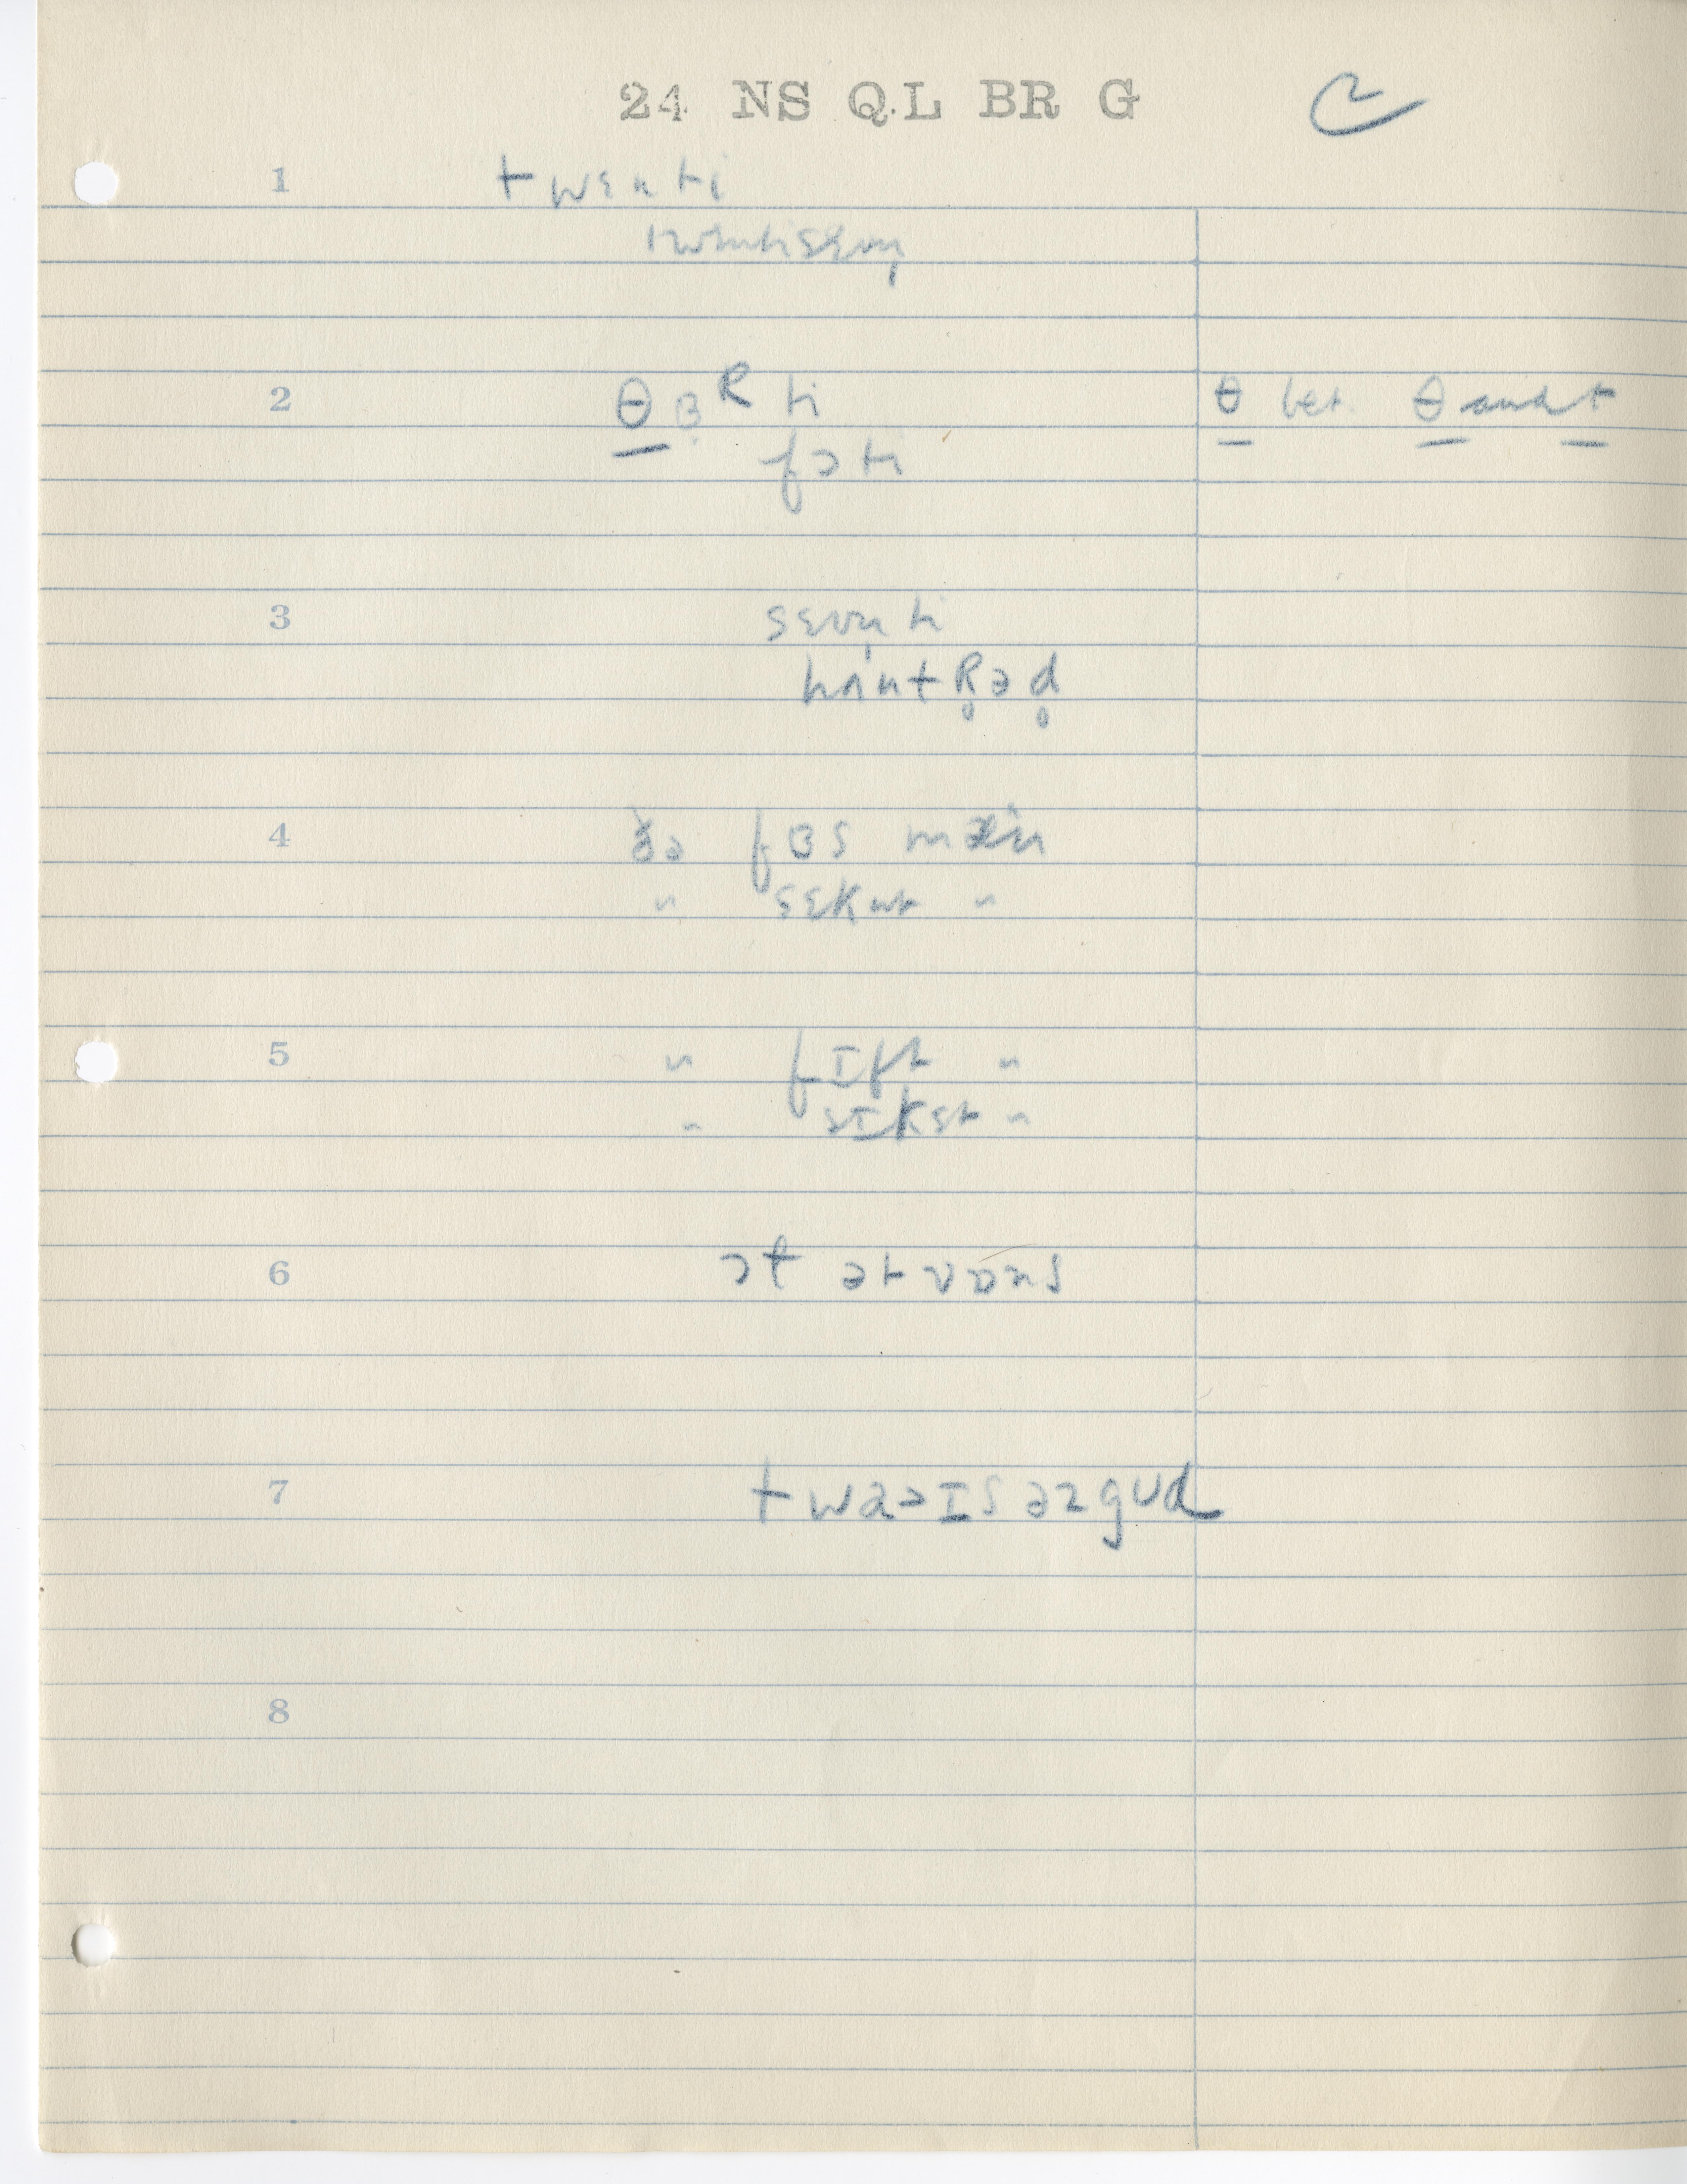 24 NS QL BR G 2
1 twɛnti
twɛntisɛvn̩
2 θɜRti θ bet. θ and t
fɔti
3 sɛvn̩ti
hʌntR̥əd̥
4 ðə fɜs mæn
" sɛknt "
5 " fɪft "
" sɪkst "
6 ɔt ət vɒns
7 twaəɪs əz gʊd
8